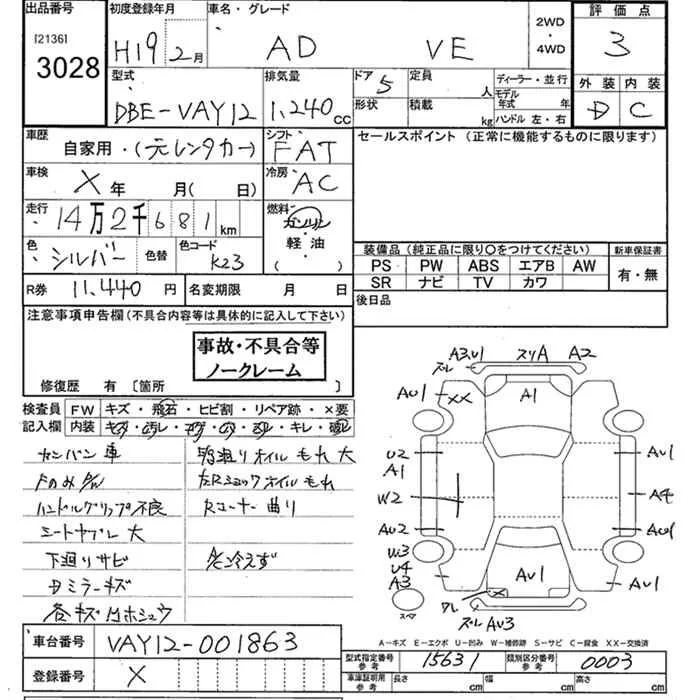 出品番号 初度登録年月 車名・グレード 2WD・4WD 評価点
[2136] 3028 H19 2月 AD VE 3
型式 排気量 ドア 5 定員 人 ディーラー・並行 外装 内装
モデル年式 年
DBE-VAY12 1,240cc 形状 積載 kg ハンドル 左・右 D C
車歴 自家用・(元レンタカー) シフト FAT セールスポイント (正常に機能するものに限ります)
車検 X 年 月(日) 冷房 AC
走行 14万2千681km 燃料 ガソリン・軽油 ( )
色 シルバー 色替 色コード K23
装備品 (純正品に限り○をつけてください) 新車保証書
PS PW ABS エアB AW 有・無
SR ナビ TV カワ
R券 11,440円 名変期限 月 日 後日品
注意事項申告欄(不具合内容等は具体的に記入して下さい)
事故・不具合等
ノークレーム
修復歴 有 〔箇所 〕
検査員記入欄
FW キズ・飛石・ヒビ割・リペア跡・×要
内装 キズ・汚レ・コゲ・穴・ヌレ・キレ・破レ
カンバン車
ハンドルグリップ不良
シートヤブレ 大
下廻りサビ
ミラーキズ
各キズ凹ホシュウ
オイルもれ 大
ショックオイルもれ
Rコーナー曲り
A/C冷えず
A3,U1 スリA A2
AU1 XX A1
U2 A1 AU1
W2 A4
AU2 AU1
W3 U4 A3
AU1 AU1
ズレ AU3
スペア
A-キズ E-エクボ U-凹み W-補修跡 S-サビ C-腐食 XX-交換済
車台番号 VAY12-001863
型式指定番号 参考 15631 類別区分番号 参考 0003
登録番号 X
車庫証明用 参考 長さ cm 幅 cm 高さ cm